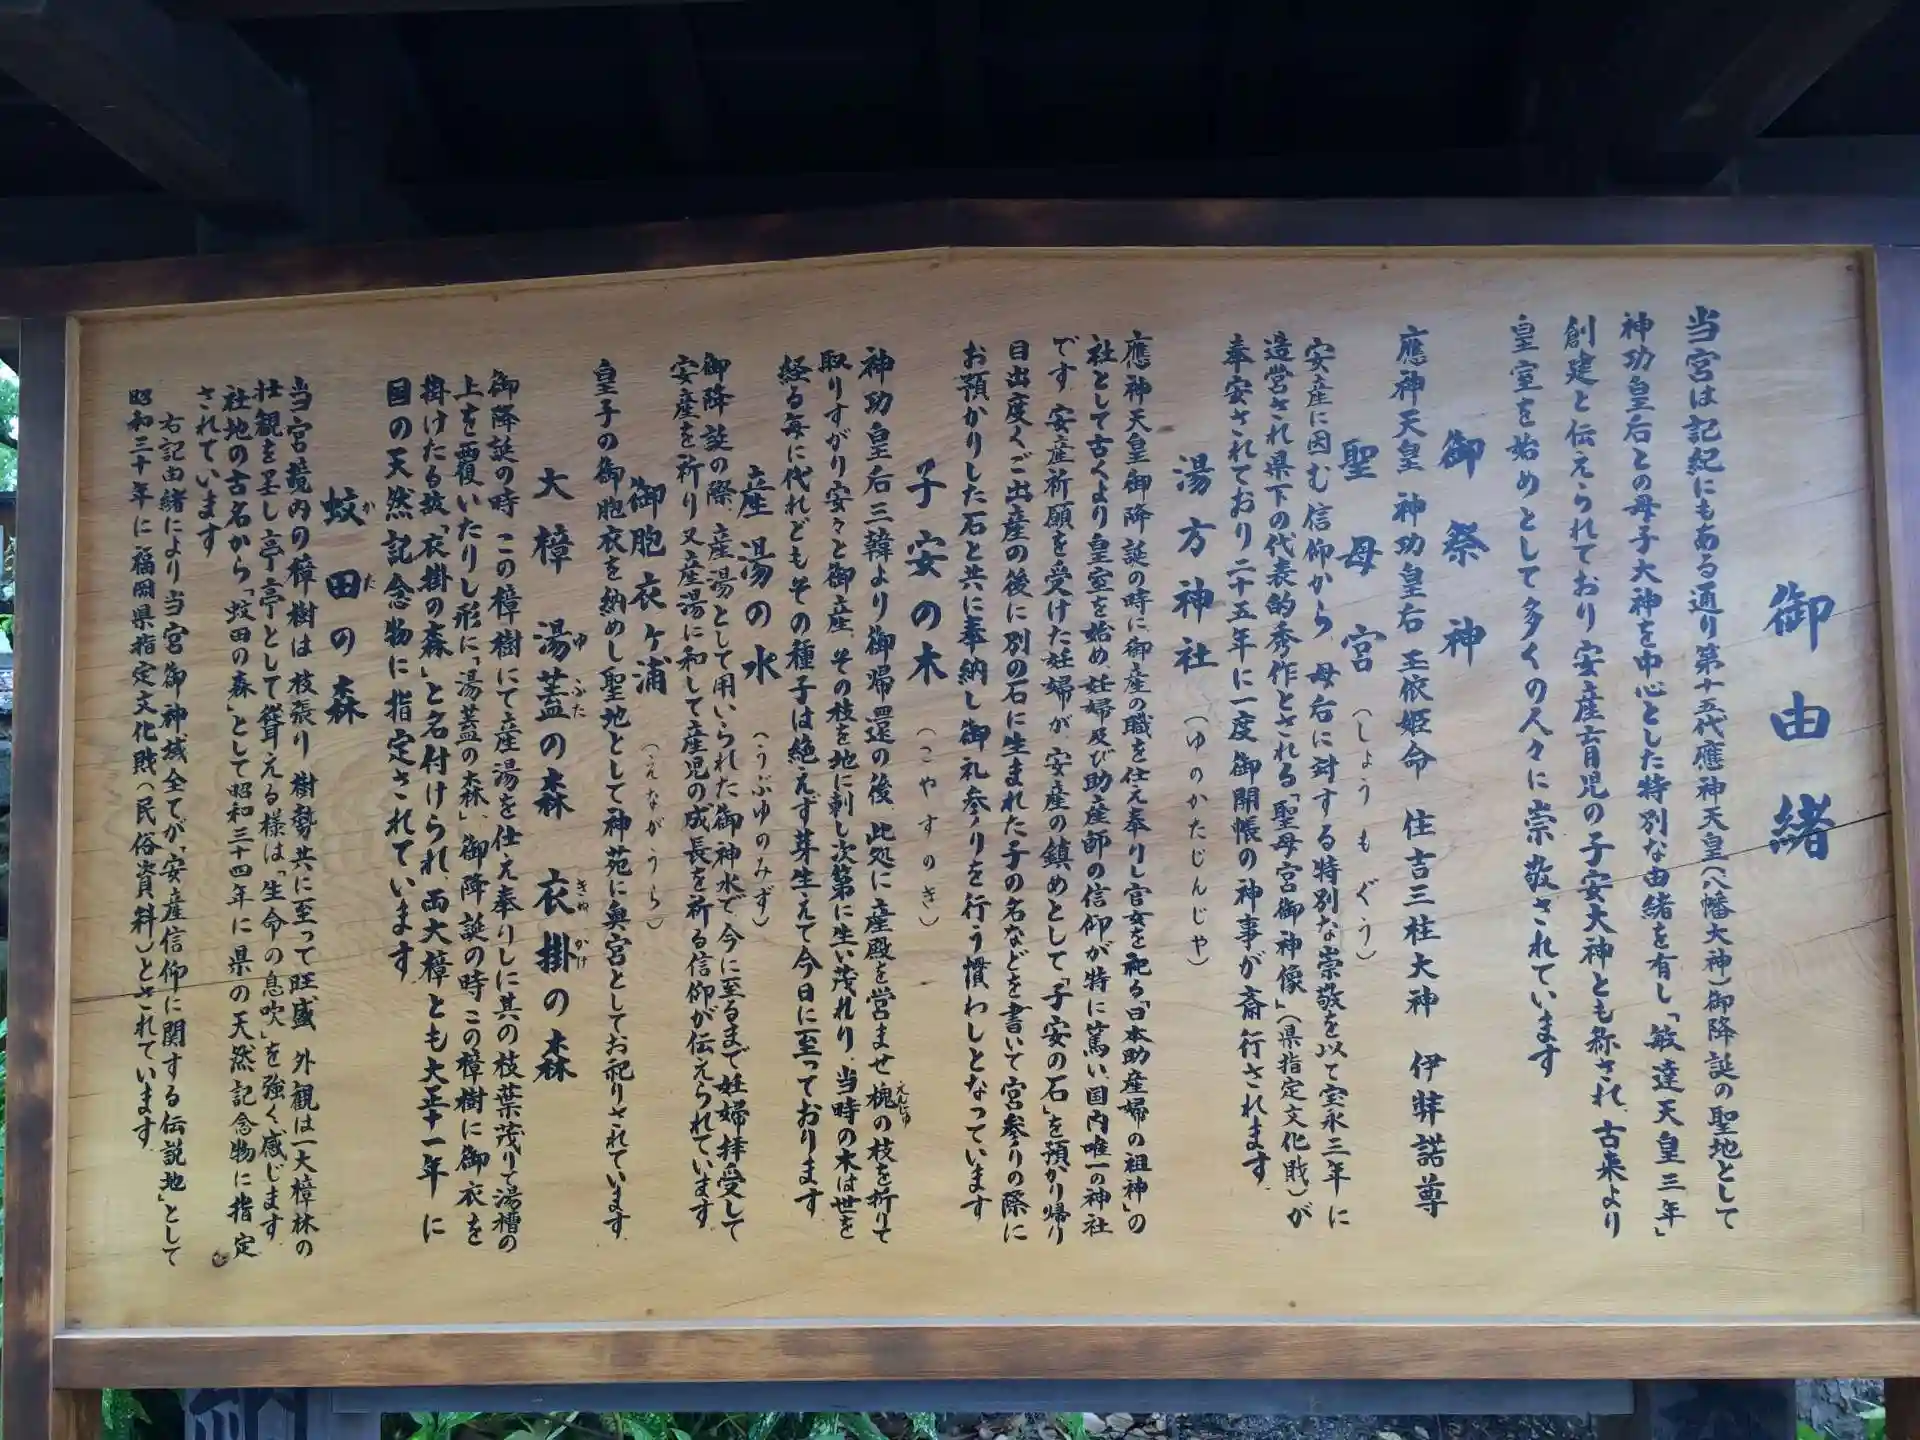 御由緒
当宮は記紀にもある通り第十五代應神天皇(八幡大神)御降誕の聖地として
神功皇后との母子大神を中心とした特別な由緒を有し「敏達天皇三年」
創建と伝えられており 安産育児の子安大神とも称され、古来より
皇室を始めとして多くの人々に崇敬されています
御祭神
應神天皇 神功皇后 玉依姫命 住吉三柱大神 伊弉諾尊
聖母宮(しょうもぐう)
安産に因む信仰から、母后に対する特別な崇敬を以て宝永三年に
造営され県下の代表的秀作とされる「聖母宮御神像」(県指定文化財)が
奉安されており二十五年に一度御開帳の神事が斎行されます
湯方神社(ゆのかたじんじゃ)
應神天皇御降誕の時に御産の職を仕え奉りし官女を祀る「日本助産婦の祖神」の
社として古くより皇室を始め、妊婦及び助産師の信仰が特に篤い、国内唯一の神社
です 安産祈願を受けた妊婦が、安産の鎮めとして「子安の石」を預かり帰り
目出度くご出産の後に別の石に生まれた子の名などを書いて宮参りの際に
お預かりした石と共に奉納し御礼参りを行う慣わしとなっています
子安の木(こやすのき)
神功皇后三韓より御帰還の後、此処に産殿を営ませ槐の枝を折りて
えんじゅ
取りすがり安々と御産、その枝を地に刺し次第に生い茂れり、当時の木は世を
経る毎に代れどもその種子は絶えず芽生えて今日に至っております
産湯の水(うぶゆのみず)
御降誕の際、産湯として用いられた御神水で今に至るまで妊婦拝受して
安産を祈り又産湯に和して産児の成長を祈る信仰が伝えられています
御胞衣ヶ浦(えながうら)
皇子の御胞衣を納めし聖地として神苑に奥宮としてお祀りされています
大樟 湯蓋の森 衣掛の森
ゆふた きぬかけ
御降誕の時、この樟樹にて産湯を仕え奉りしに其の枝葉茂りて湯槽の
上を覆いたりし形に「湯蓋の森」、御降誕の時この樟樹に御衣を
掛けたる故「衣掛の森」と名付けられ、両大樟とも大正十一年に
国の天然記念物に指定されています
蚊田の森
かだ
当宮境内の樟樹は枝張り樹勢共に至って旺盛 外観は一大樟林の
壮観を呈し亭亭として聳える様は「生命の息吹」を強く感じます
社地の古名から「蚊田の森」として昭和三十四年に県の天然記念物に指定
されています
右記由緒により当宮御神域全てが「安産信仰に関する伝説地」として
昭和三十年に福岡県指定文化財(民俗資料)とされています